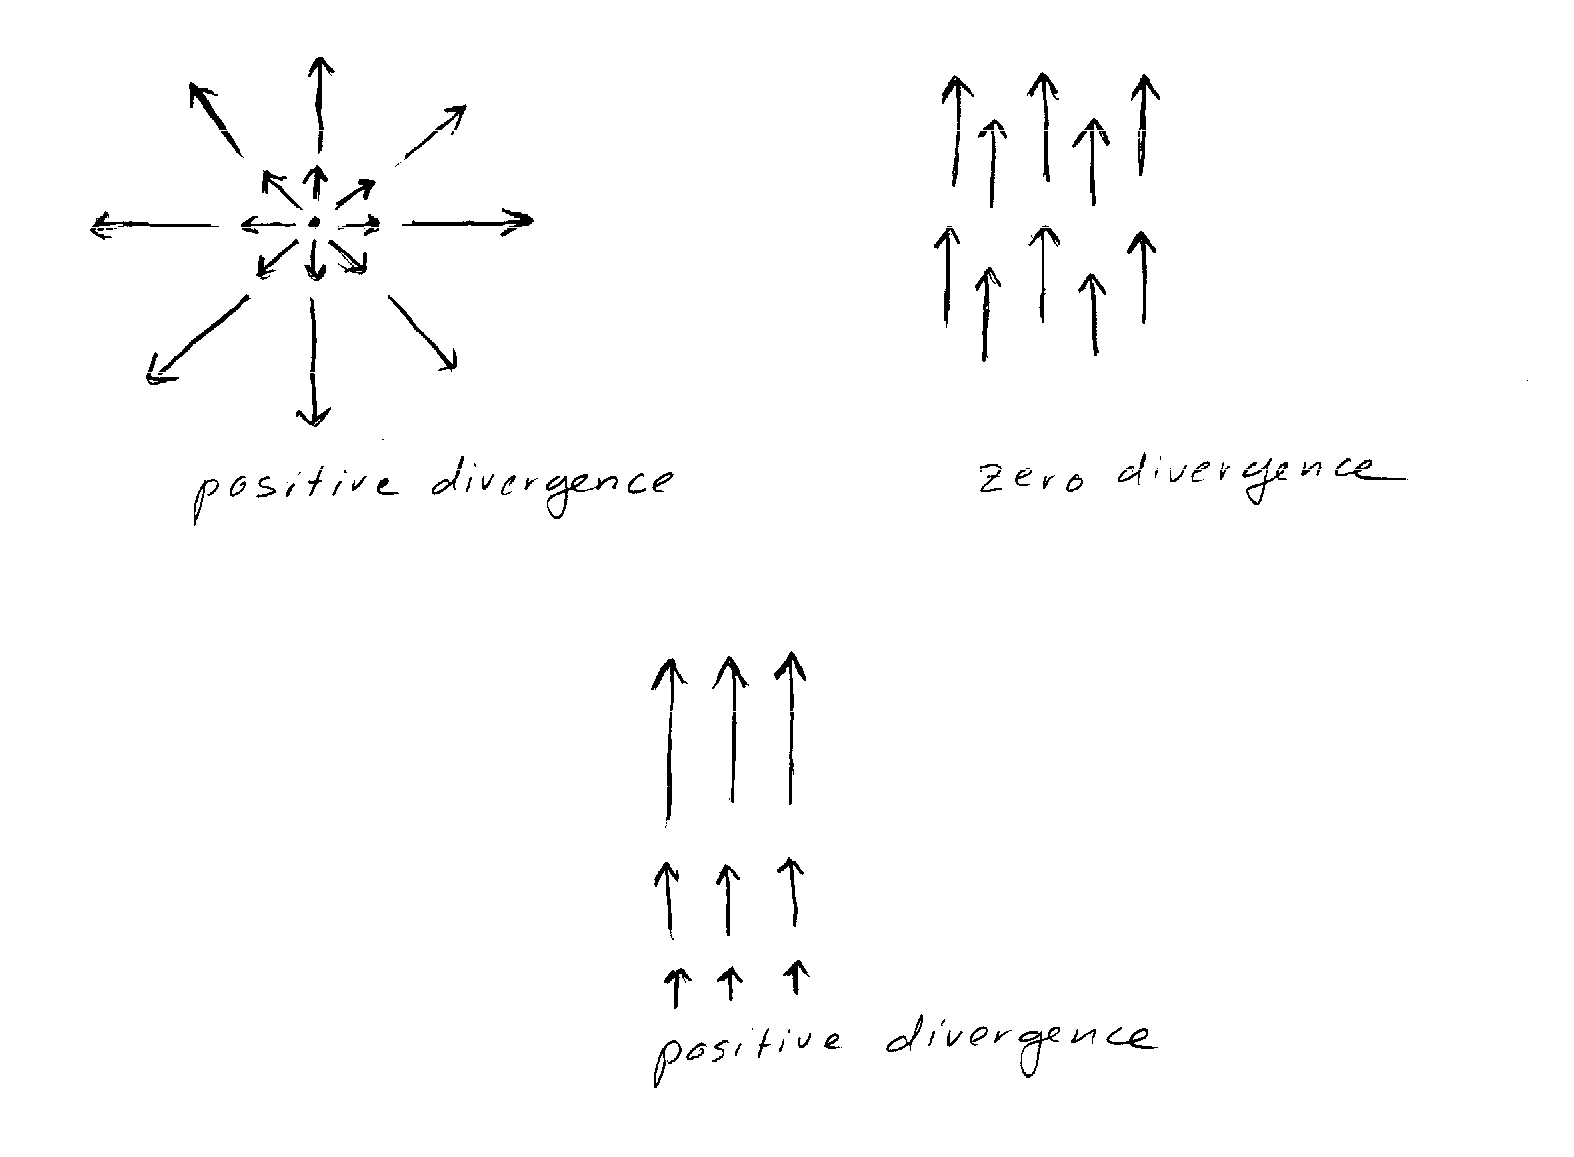 positive divergence
zero divergence
positive divergence